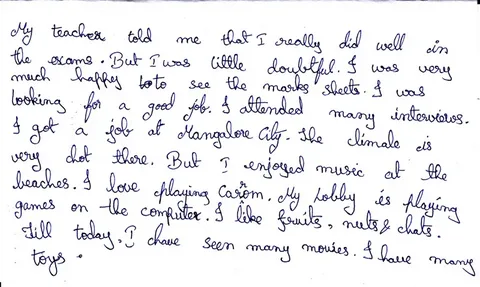 My teacher told me that I really did well in
the exams. But I was little doubtful. I was very
much happy to to see the marks sheets. I was
looking for a good job. I attended many interviews.
I got a job at Mangalore City. The climate is
very hot there. But I enjoyed music at the
beaches. I love playing Carom. My Lobby is playing
games on the computer. I like fruits, nuts & chats.
Till today, I have seen many movies. I have many
toys.